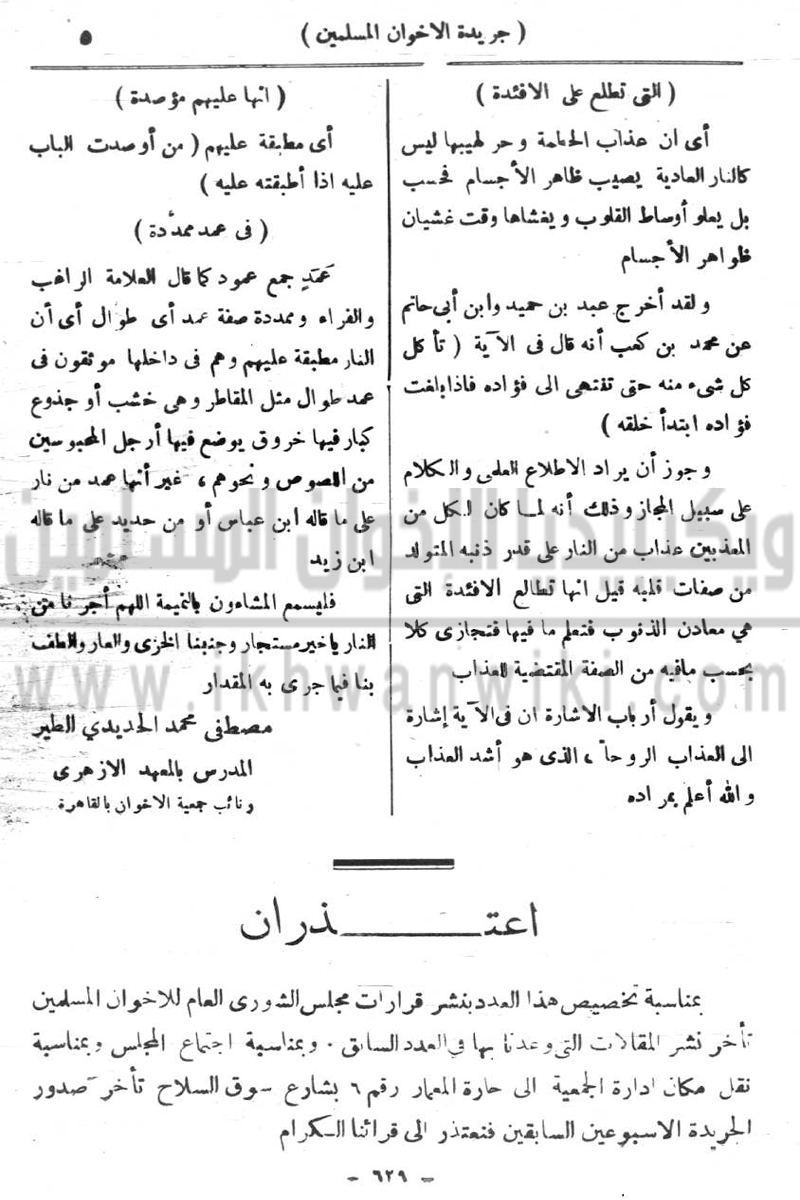 ( جريدة الاخوان المسلمين )
٥
( التى تطلع على الافئدة )
أى ان عذاب الحطمة وحر لهيبها ليس
كالنار العادية يصيب ظاهر الأجسام فحسب
بل يعلو أوساط القلوب ويغشاها وقت غشيان
ظواهر الأجسام
ولقد أخرج عبد بن حميد وابن أبى حاتم
عن محمد بن كعب أنه قال فى الآية ( تأكل
كل شىء منه حتى تنتهى الى فؤاده فاذا بلغت
فؤاده ابتدأ خلقه )
وجوز أن يراد الاطلاع العلمى والكلام
على سبيل المجاز وذلك أنه لما كان لكل من
المعذبين عذاب من النار على قدر ذنبه المتولد
من صفات قلبه قيل انها تطالع الافئدة التى
هي معادن الذنوب فتعلم ما فيها فتجازى كلا
بحسب مافيه من الصفة المقتضية للعذاب
ويقول أرباب الاشارة ان فى الآية إشارة
الى العذاب الروحا ، الذى هو أشد العذاب
والله أعلم بمراده
( انها عليهم مؤصدة )
أى مطبقة عليهم ( من أوصدت الباب
عليه اذا أطبقته عليه )
( فى عمد ممدَّدة )
عَمَدٍ جمع عمود كما قال العلامة الراغب
والفراء وممددة صفة عمد أى طوال أى أن
النار مطبقة عليهم وهم فى داخلها موثقون فى
عمد طوال مثل المقاطر وهى خشب أو جذوع
كبار فيها خروق يوضع فيها أرجل المحبوسين
من اللصوص ونحوهم ، غير أنها عمد من نار
على ما قاله ابن عباس أو من حديد على ما قاله
ابن زيد
فليسمع المشاءون بالنميمة اللهم أجرنا من
النار ياخير مستجار وجنبنا الخزى والعار والطف
بنا فيما جرى به المقدار
مصطفى محمد الحديدي الطير
المدرس بالمعهد الازهرى
ونائب جمعية الاخوان بالقاهرة
اعتــــذران
بمناسبة تخصيص هذا العدد بنشر قرارات مجلس الشورى العام للاخوان المسلمين
تأخر نشر المقالات التى وعدنا بها في العدد السابق . وبمناسبة اجتماع المجلس وبمناسبة
نقل مكان ادارة الجمعية الى حارة المعمار رقم ٦ بشارع سوق السلاح تأخر صدور
الجريدة الاسبوعين السابقين فنعتذر الى قرائنا الكرام
- ٦٢٩ -
ويكيبيديا الإخوان المسلمين
www.ikhwanwiki.com